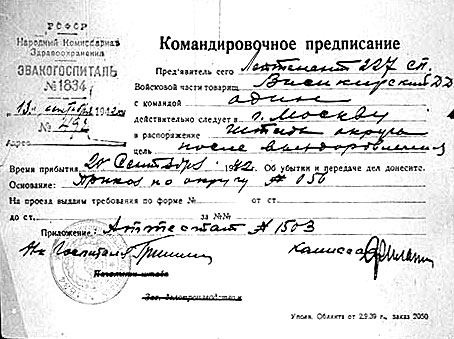 РСФСР
Народный Комиссариат
Здравоохранения
ЭВАКОГОСПИТАЛЬ
№ 1834
13 сентября 1942 г.
№ 494
Адрес
Командировочное предписание
Пред'явитель сего Лейтенант 227 сп.
Войсковой части товарищ
с командой один
действительно следует в г. Москву
в распоряжение Штаба округа
цель после выздоровления
Время прибытия 20 Сентября 1942 Об убытии и передаче дел донесите.
Основание: Приказ по округу № 056
На проезд выданы требования по форме № от ст.
до ст. за №№
Приложение: Аттестат № 1503
Нач Госпиталя Комиссар
Начальник штаба
Зав. делопроизводством
Упол. Обллита от 2.9.39 г., заказ 2050